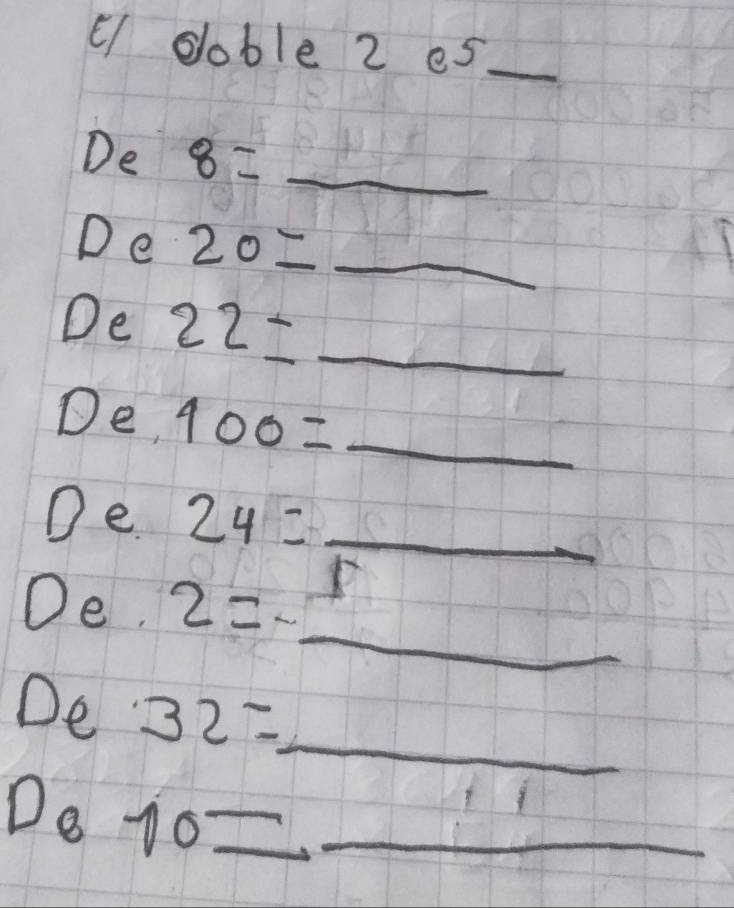 El doble 2 es __
De 8 = ____
De 20 = ____
De 22 = ____
De 100 = ____
De 24 = ____
De 2 = ____
De 32 = ____
De 10 = ____